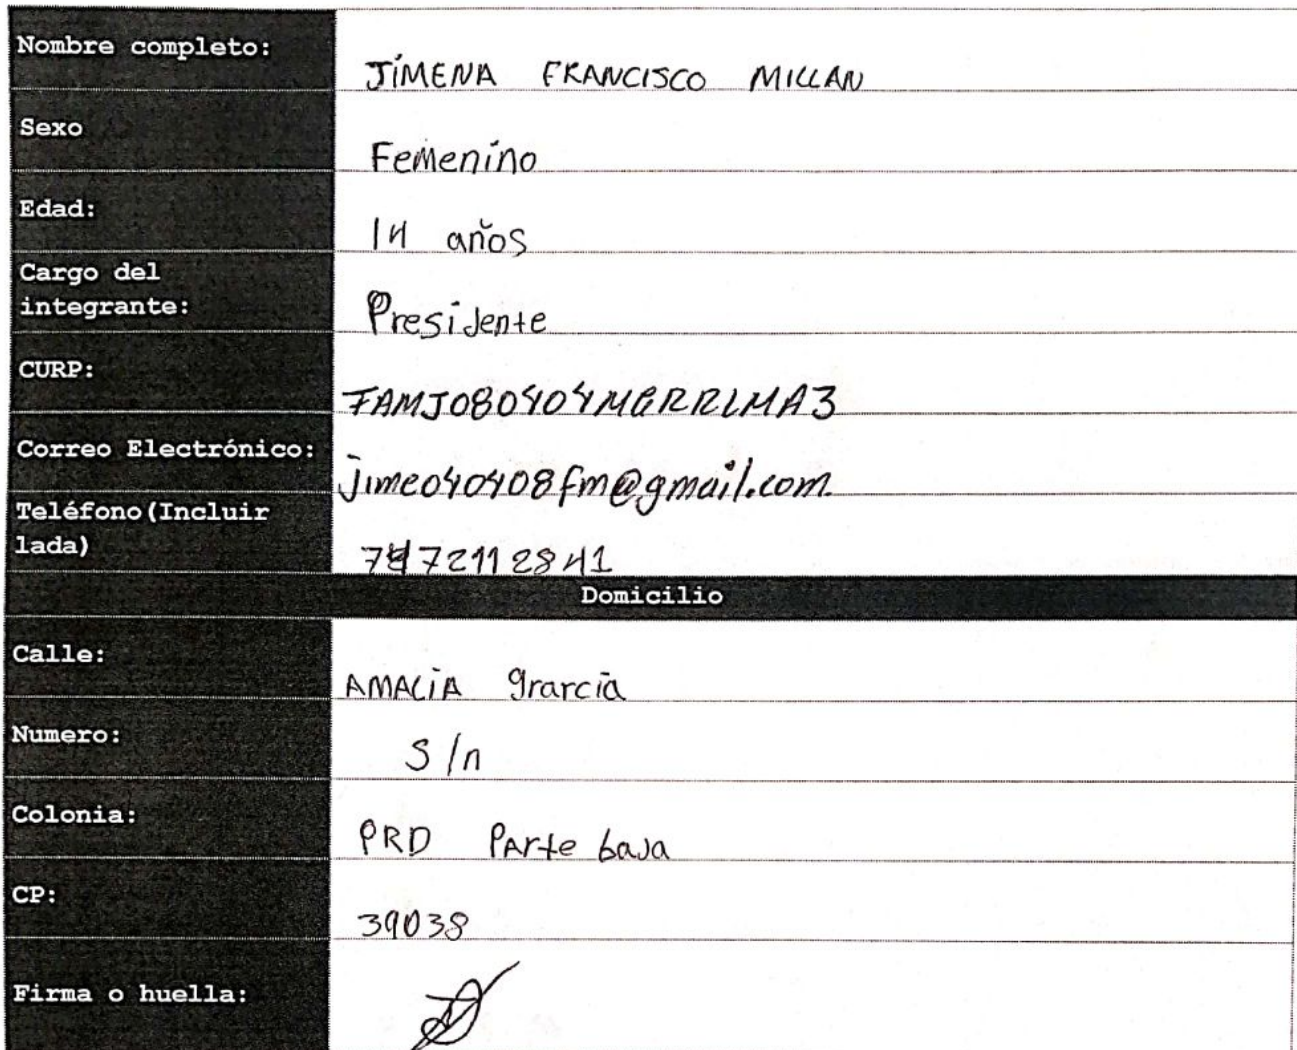 Nombre completo:
JIMENA FRANCISCO MILLAN
Sexo
Femenino
Edad:
14 años
Cargo del
integrante:
Presidente
CURP:
FAMJ080404MGRRLMA3
Correo Electrónico:
jime040408fm@gmail.com
Teléfono(Incluir
lada)
7472112841
Domicilio
Calle:
AMALIA grarcia
Numero:
S/n
Colonia:
PRD Parte baja
CP:
39038
Firma o huella: